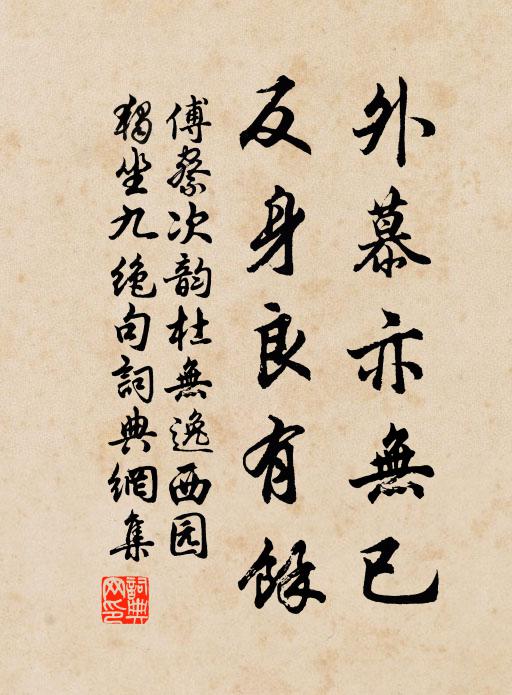 外慕亦無已
反身良有餘
傅察次韵杜無逸西园
獨坐九绝句詞典網集